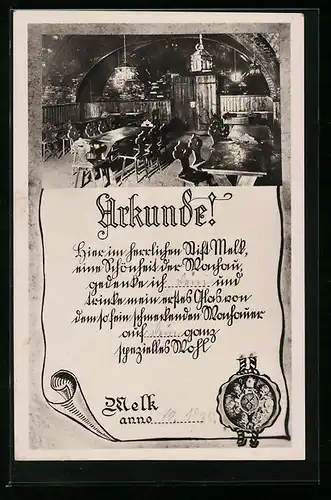 Urkunde!
Hier im herrlichen Stift Melk,
eine Schönheit der Wachau,
gedenke ich und
trinke mein erstes Glas von
dem so fein schmeckenden Wachauer
auf ganz
spezielles Wohl
Melk
anno